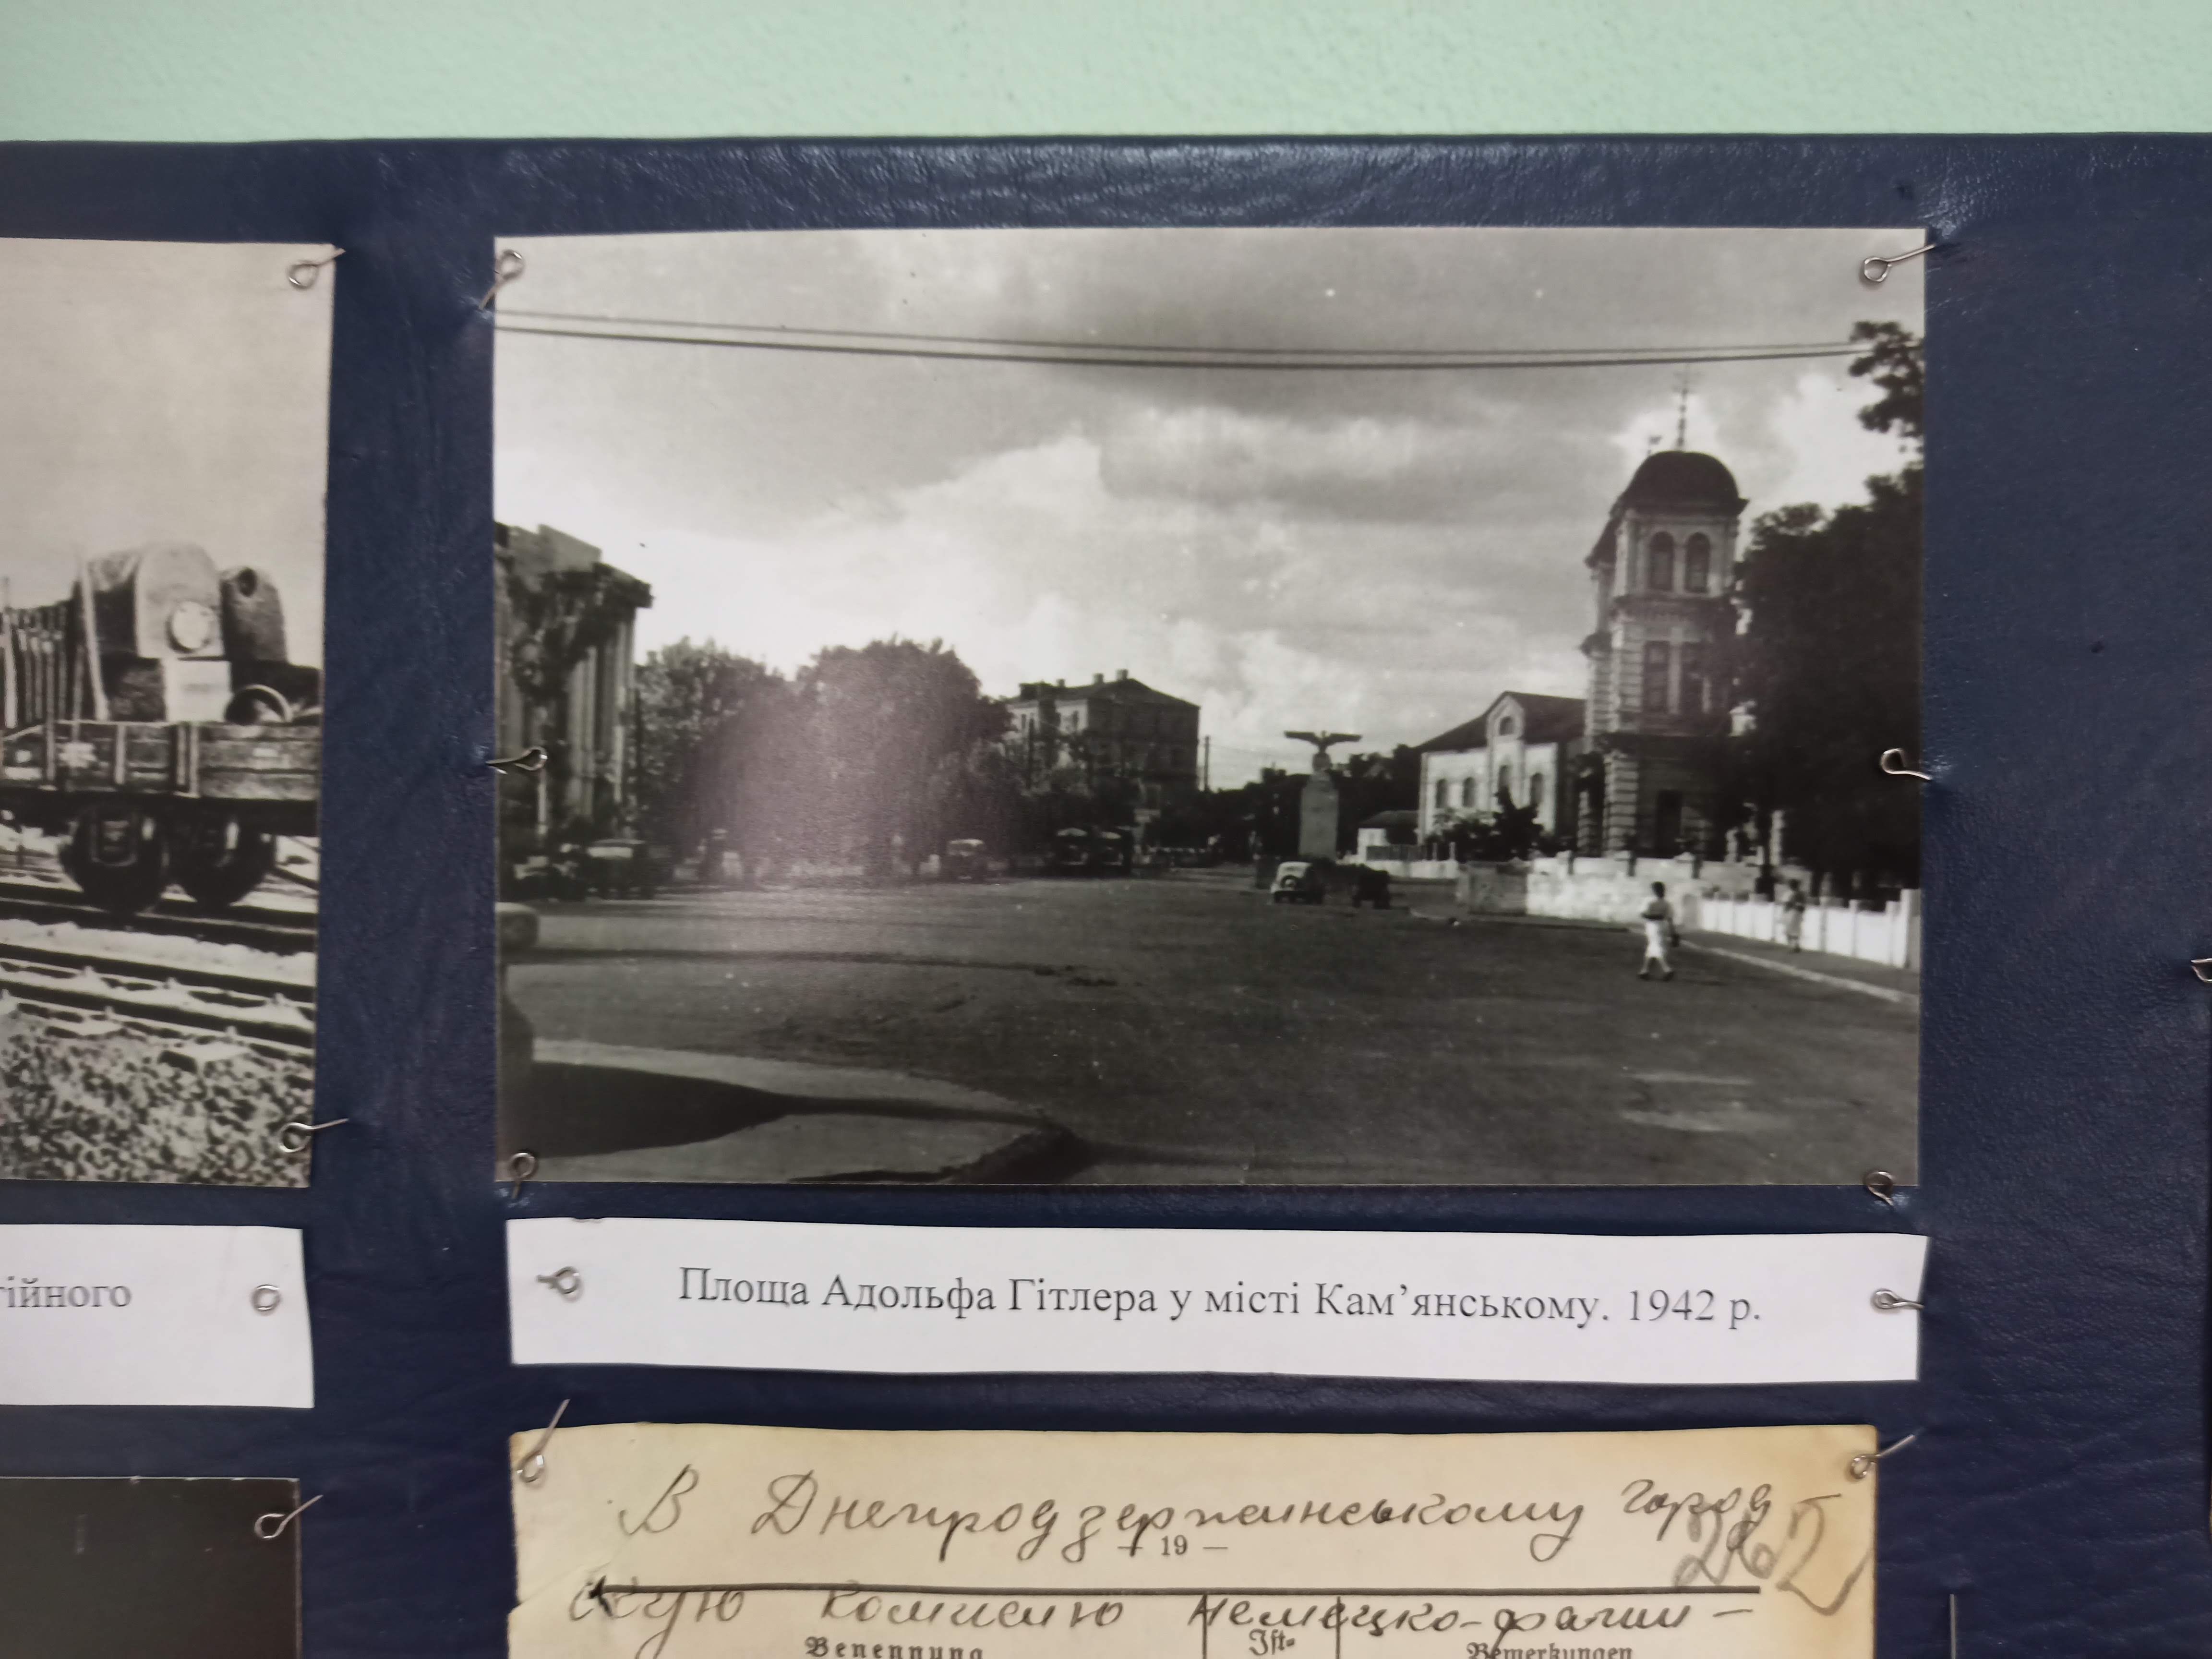 тійного
Площа Адольфа Гітлера у місті Кам’янському. 1942 р.
В Днепродзержинському город
262
— 19 —
скую комисию немецко-фаши-
Benennung Ist- Bemerkungen